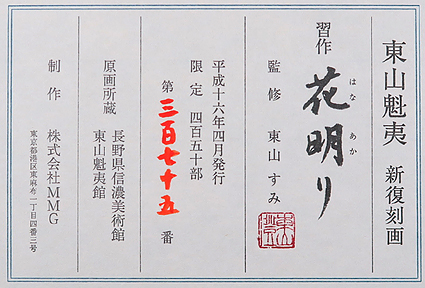 東山魁夷 新復刻画
習作 花明り
はな あか
監修 東山すみ
平成十六年四月発行
限定 四百五十部
第 三百七十五 番
原画所蔵 長野県信濃美術館
東山魁夷館
制作 株式会社MMG
東京都港区東麻布一丁目四番三号